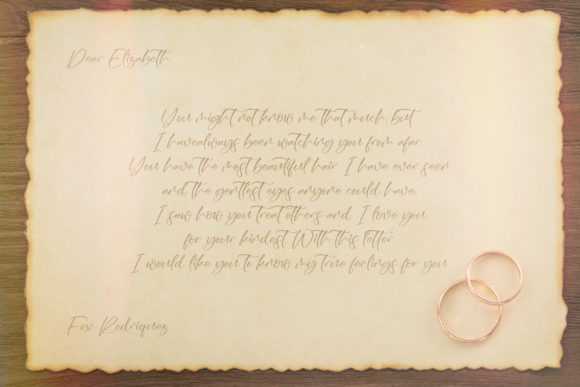 Dear Elizabeth
You might not know me that much, but
I havealways been watching you from afar.
You have the most beautiful hair I have ever seen
and the gentlest eyes anyone could have.
I saw how you treat others and I love you
for your kindest. With this letter
I would like you to know my true feelings for you.
Fox Rodriquez.